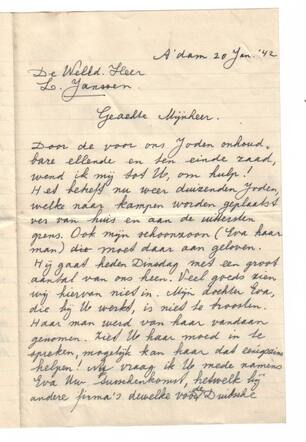 A'dam 20 Jan. '42
De WelEd. Heer
L. Janssen.
Geachte Mijnheer.
Door de voor ons Joden onhoud-
bare ellende en ten einde raad,
wend ik mij tot U, om hulp!
Het betreft nu weer duizenden Joden,
welke naar kampen worden geplaatst
ver van huis en aan de uitersten
grens. Ook mijn schoonzoon (Eva haar
man) die moet daar aan geloven.
Hij gaat heden Dinsdag met een groot
aantal van ons heen. Veel goeds zien
wij hiervan niet in. Mijn dochter Eva,
die bij U werkt, is niet te troosten.
Haar man werd van haar vandaan
genomen. Ziet U haar moed in te
spreken, mogelijk kan haar dat eenigszins
helpen! Nu vraag ik U mede namens
Eva Uw tusschenkomst, hetwelk bij
andere firma's dewelke voor de Duitsche